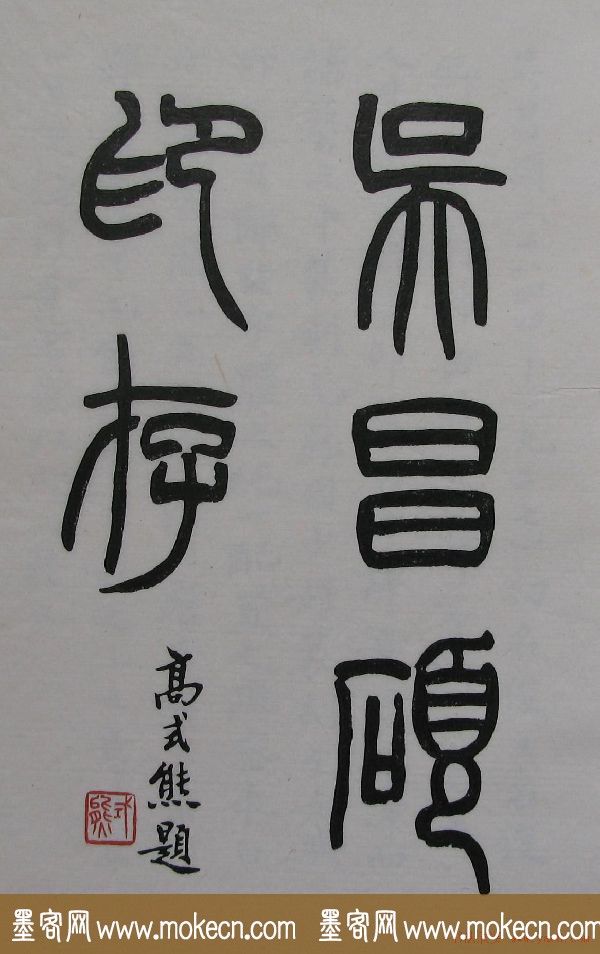 吴昌碩
印存
高式熊題
式熊
墨客网 www.mokecn.com 墨客网 www.mokecn.com